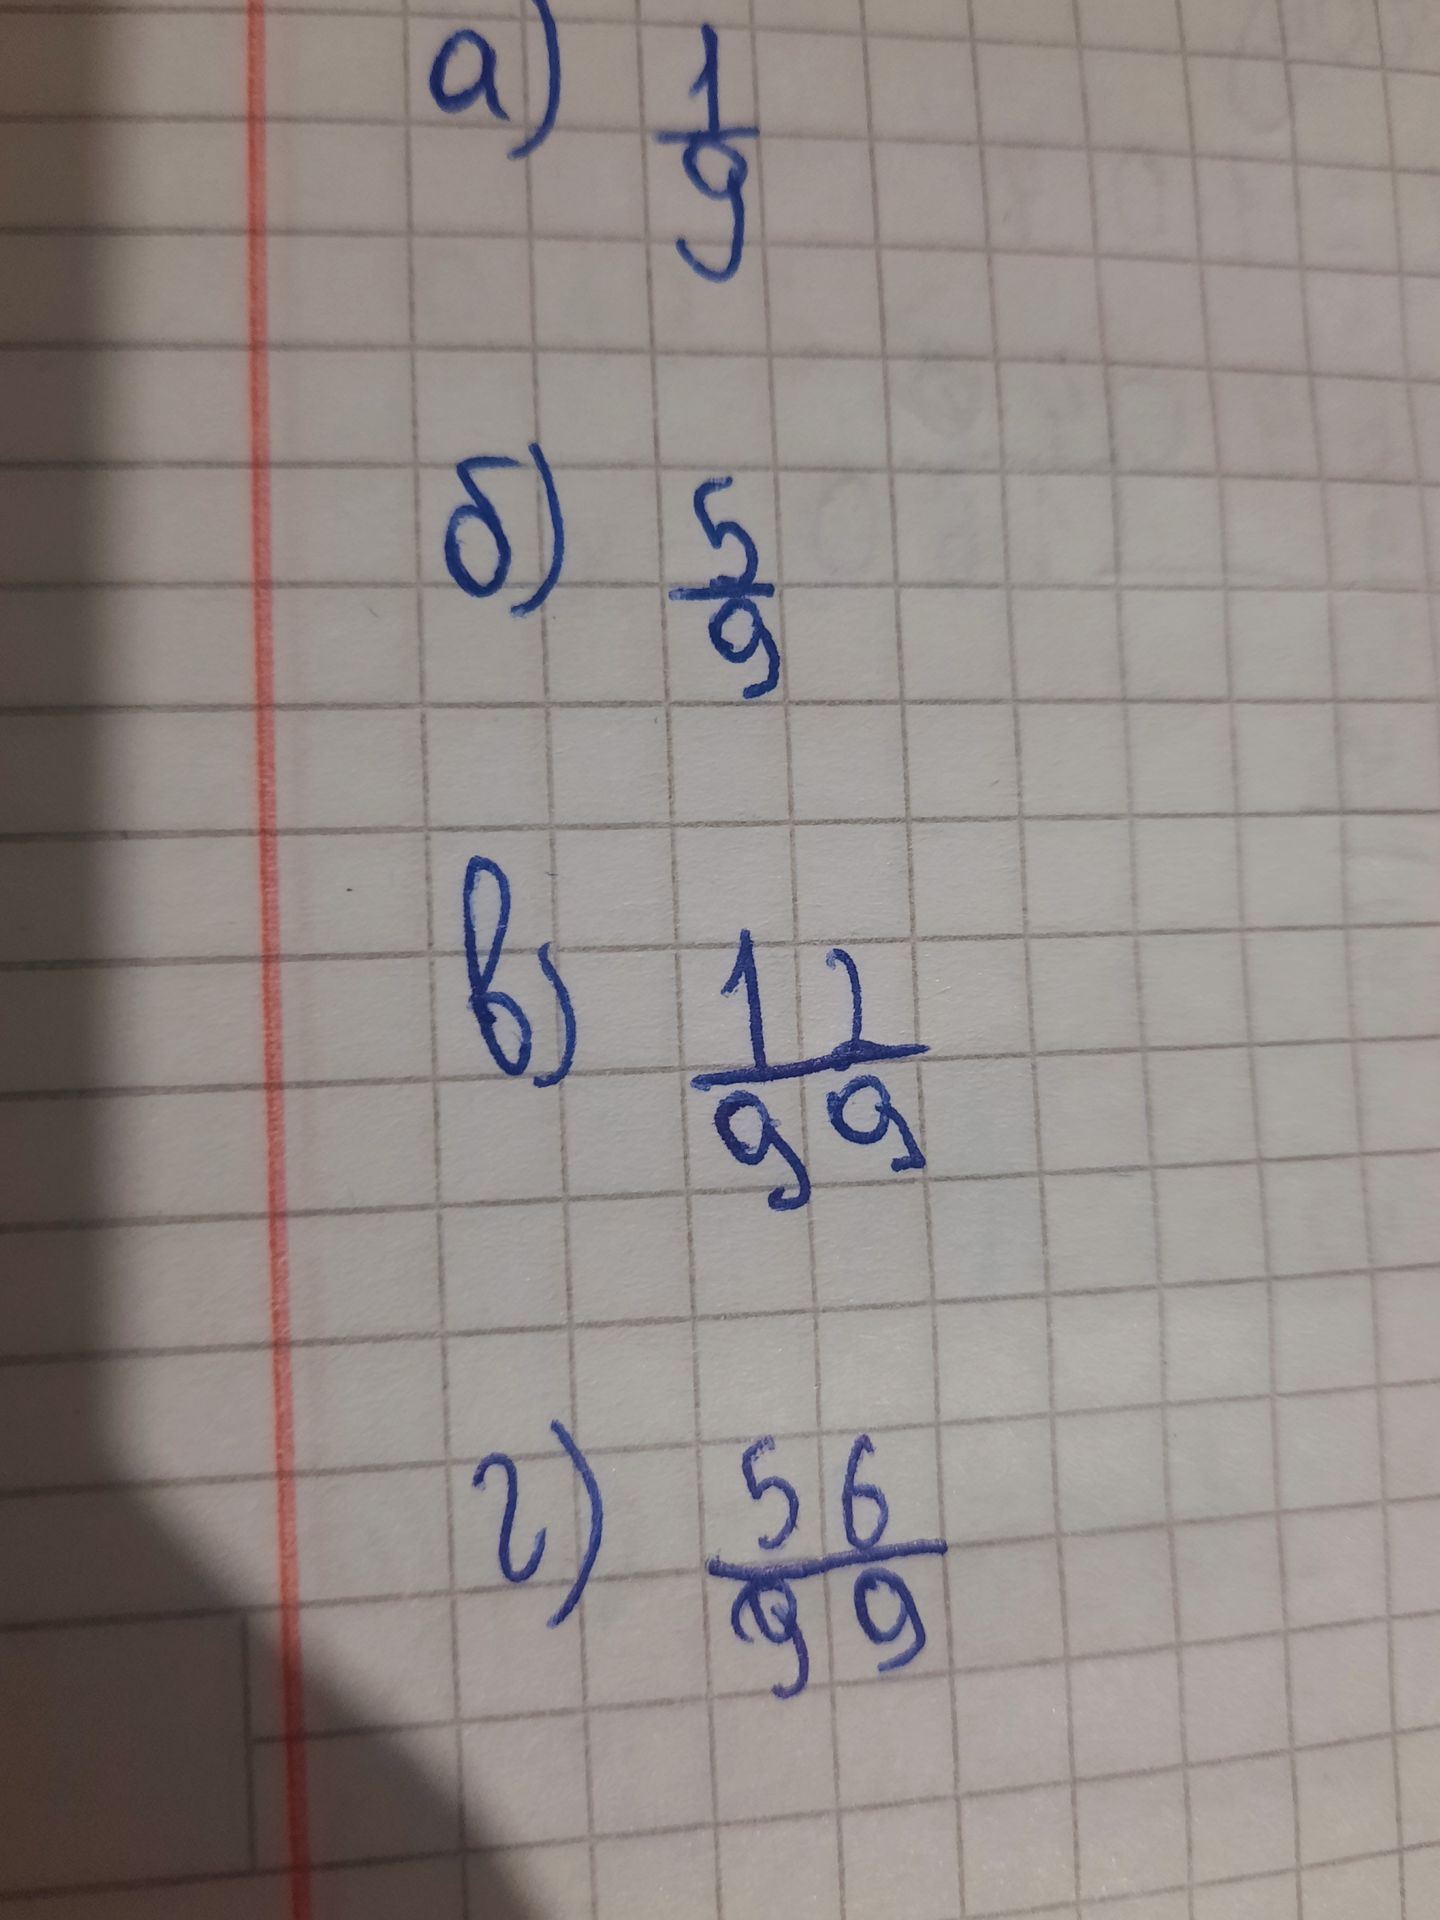 а) 1/9
б) 5/9
в) 12/99
г) 56/99